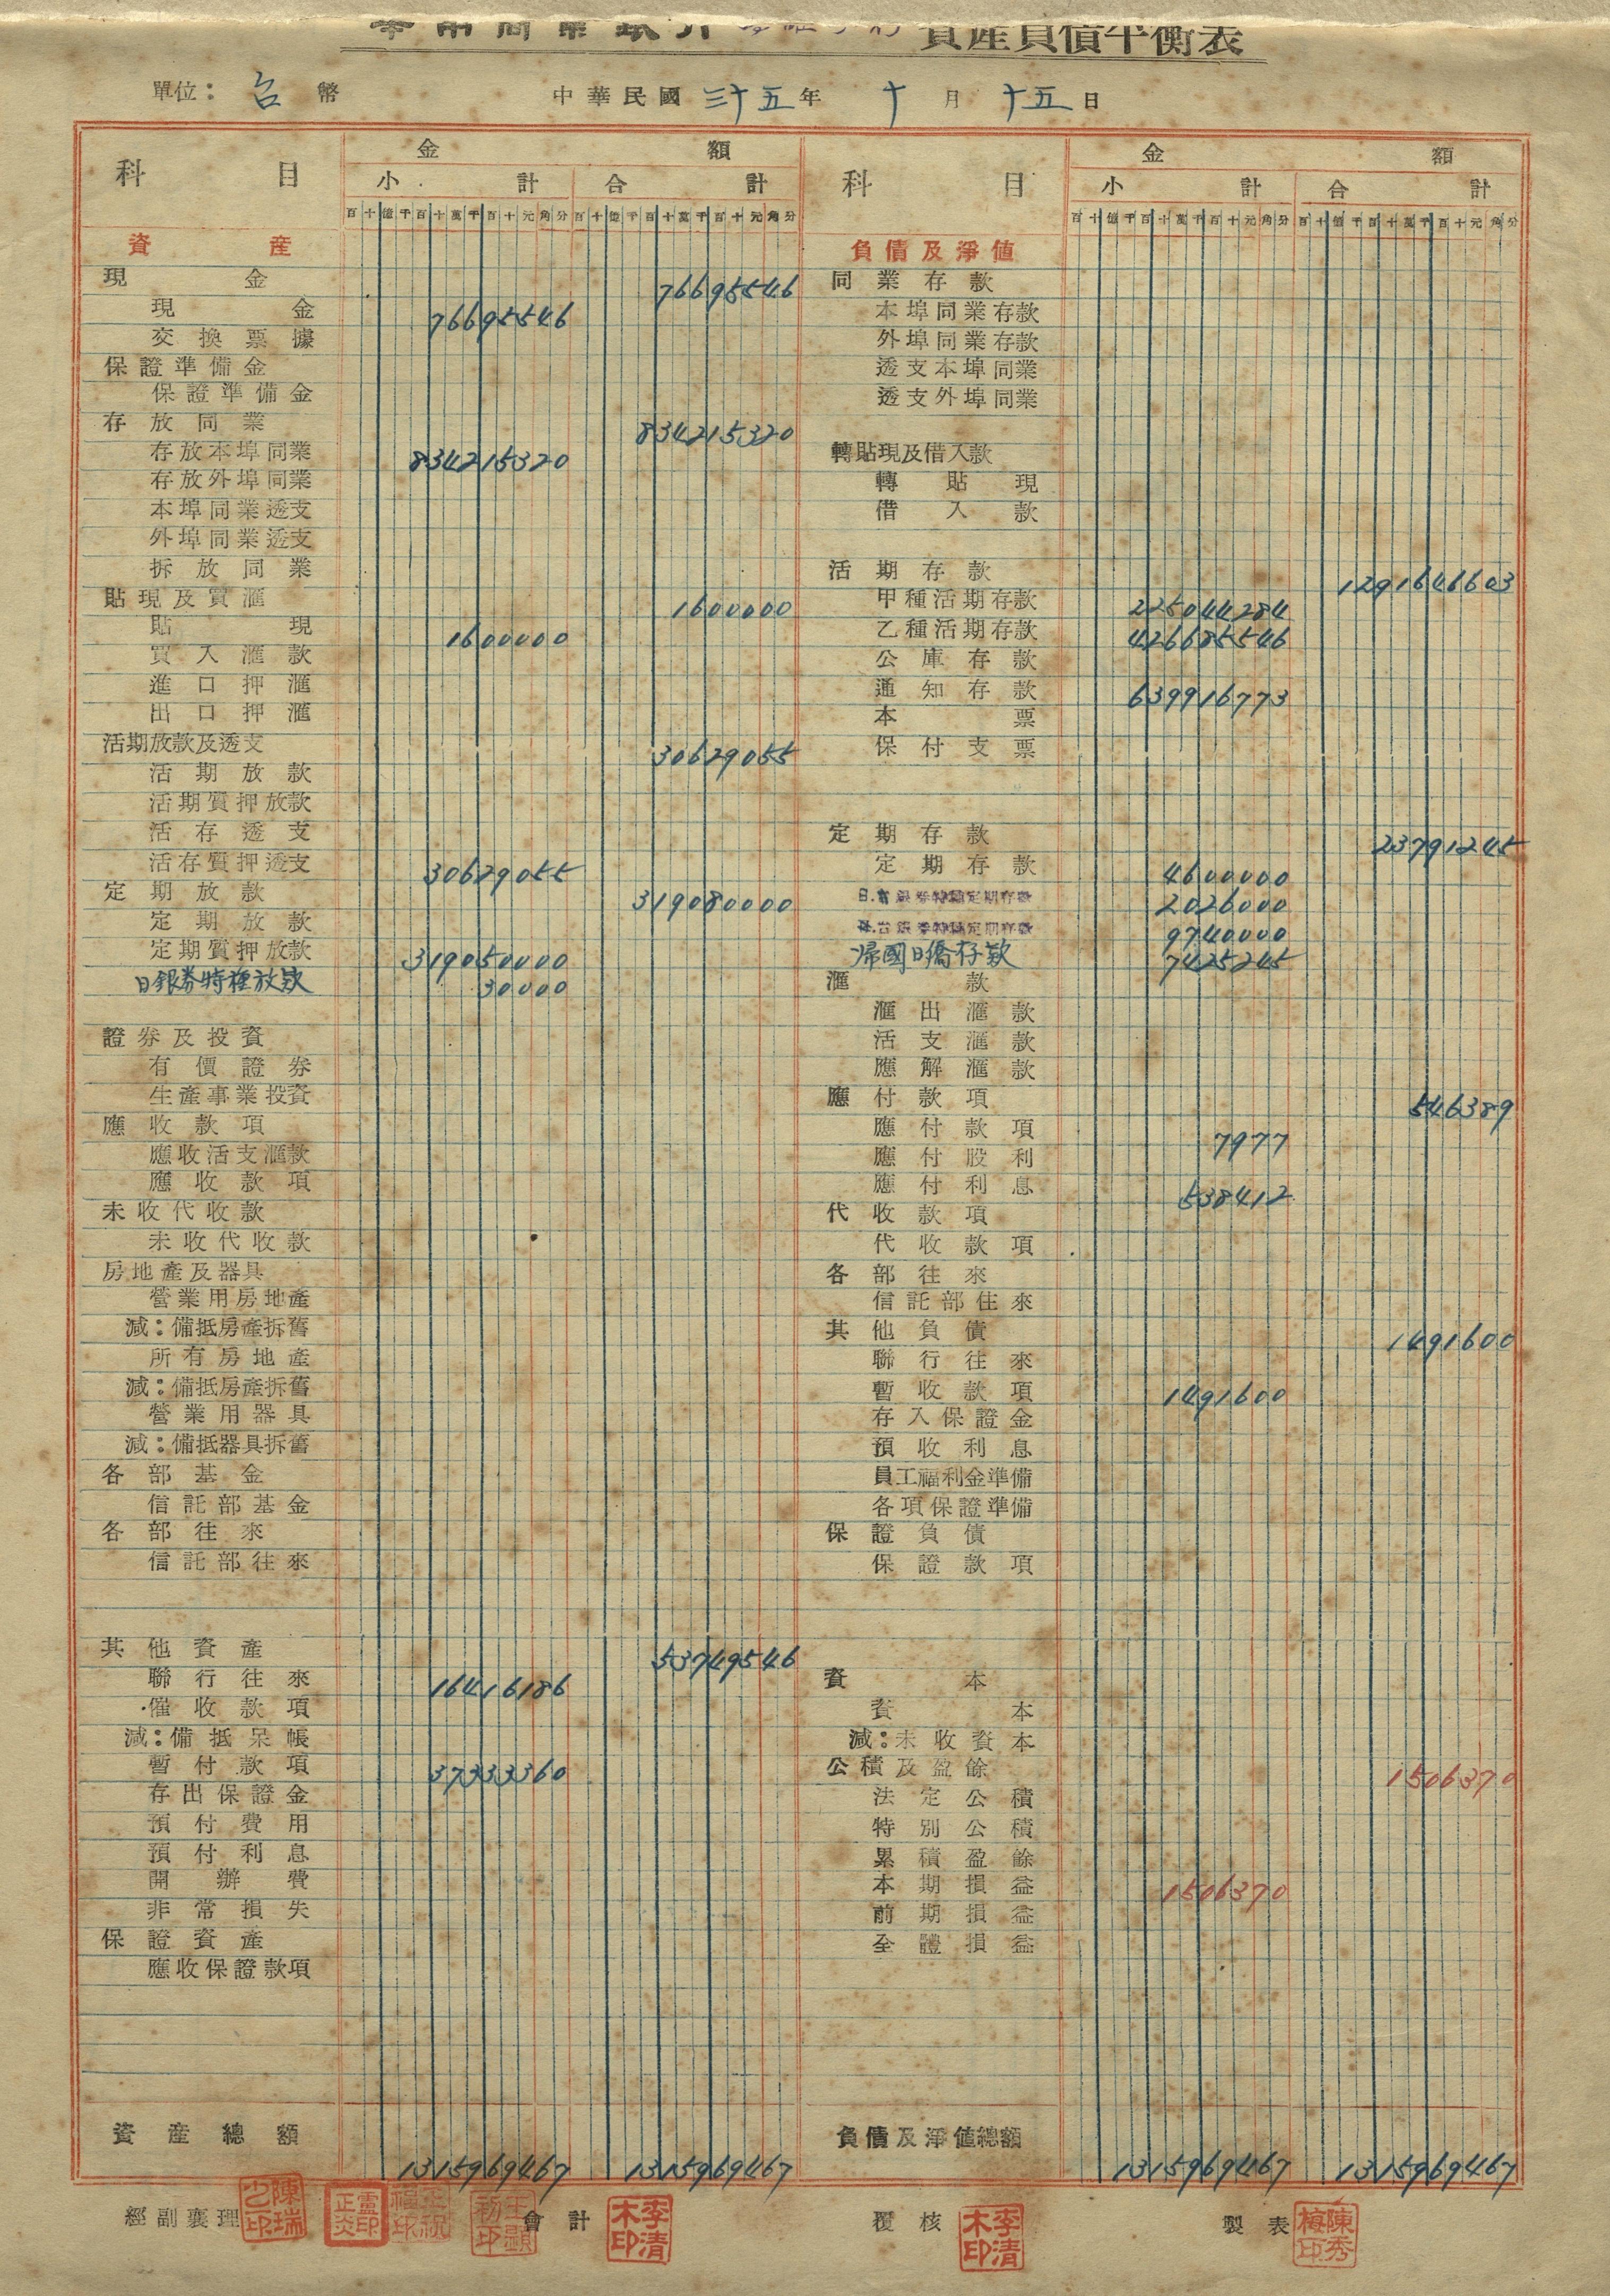 華南商業銀行 資產負債平衡表
單位：台幣 中華民國三十五年十月十五日
科目 金額 科目 金額
小計 合計 小計 合計
百十億千百十萬千百十元角分 百十億千百十萬千百十元角分 百十億千百十萬千百十元角分 百十億千百十萬千百十元角分
資產
現金 76695546
現金 76695546
交換票據
保證準備金
保證準備金
存放同業 834215320
存放本埠同業 834215320
存放外埠同業
本埠同業透支
外埠同業透支
拆放同業
貼現及買滙 1600000
貼現 1600000
買入滙款
進口押滙
出口押滙
活期放款及透支 30629055
活期放款
活期質押放款
活存透支
活存質押透支 30629055
定期放款 319080000
定期放款
定期質押放款 319050000
日銀券特種放款 30000
證券及投資
有價證券
生產事業投資
應收款項
應收活支滙款
應收款項
未收代收款
未收代收款
房地產及器具
營業用房地產
減：備抵房產拆舊
所有房地產
減：備抵房產拆舊
營業用器具
減：備抵器具拆舊
各部基金
信託部基金
各部往來
信託部往來
其他資產 53749546
聯行往來 16416186
催收款項
減：備抵呆帳
暫付款項 37333360
存出保證金
預付費用
預付利息
開辦費
非常損失
保證資產
應收保證款項
資產總額 1315969467 1315969467
負債及淨值
同業存款
本埠同業存款
外埠同業存款
透支本埠同業
透支外埠同業
轉貼現及借入款
轉貼現
借入款
活期存款 1291646603
甲種活期存款 225044284
乙種活期存款 426685546
公庫存款
通知存款 639916773
本票
保付支票
定期存款 23791245
定期存款 4600000
日.銀券特種定期存款 2026000
台銀券特種定期存款 9740000
帰國日僑存款 7425245
滙款
滙出滙款
活支滙款
應解滙款
應付款項 546389
應付款項 7977
應付股利
應付利息 538412
代收款項
代收款項
各部往來
信託部往來
其他負債 1491600
聯行往來
暫收款項 1491600
存入保證金
預收利息
員工福利金準備
各項保證準備
保證負債
保證款項
資本
資本
減：未收資本
公積及盈餘 1506370
法定公積
特別公積
累積盈餘
本期損益 1506370
前期損益
全體損益
負債及淨值總額 1315969467 1315969467
經副襄理 會計 李清木印 覆核 李清木印 製表 陳秀梅印